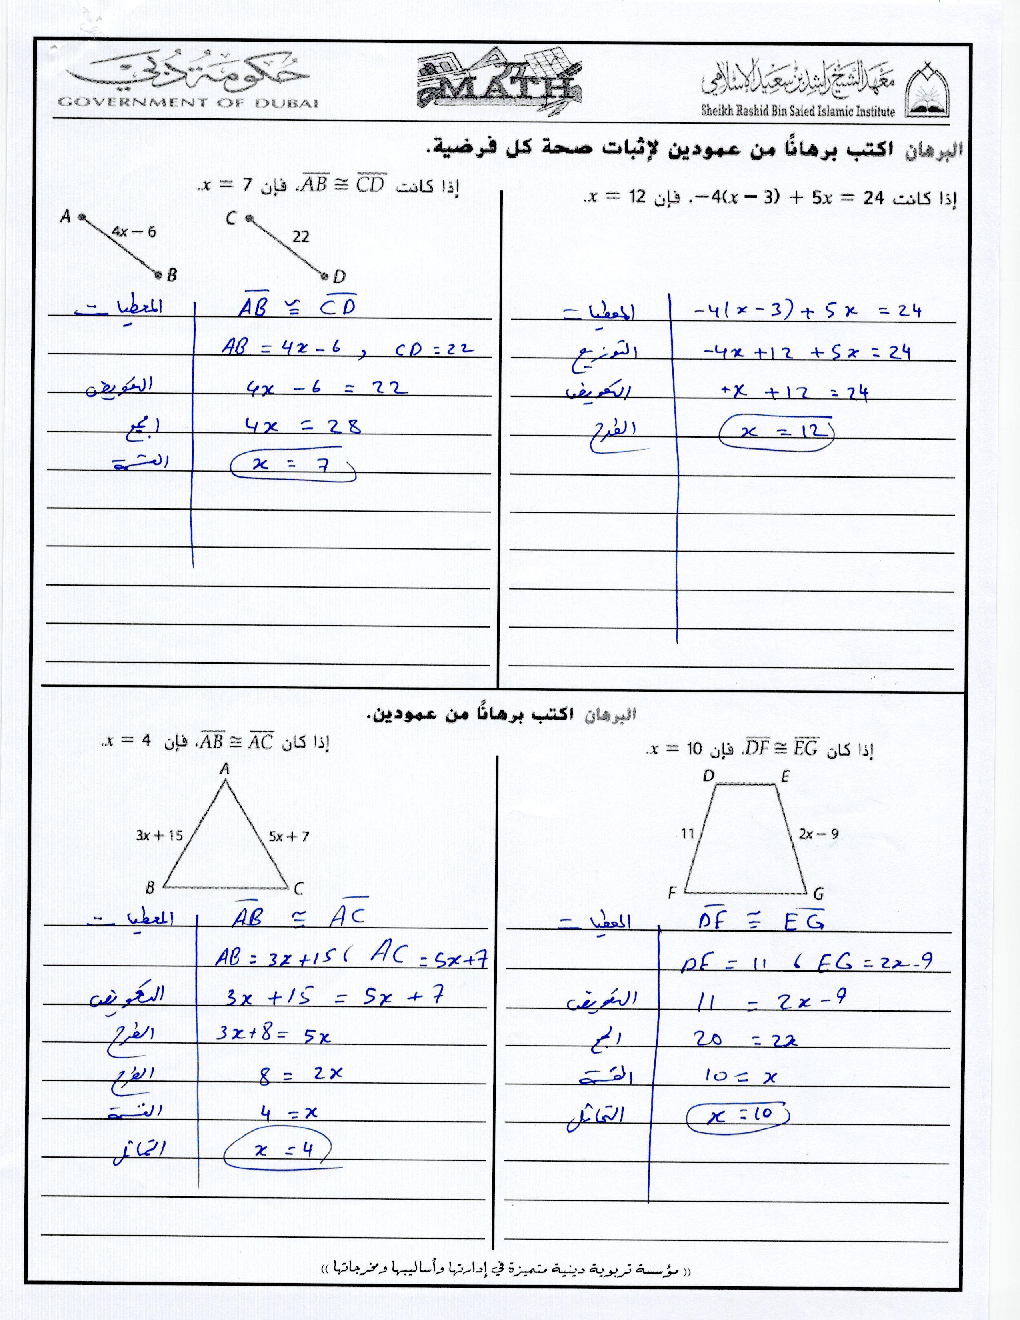 حكومة دبي
GOVERNMENT OF DUBAI
MATH
معهد الشيخ راشد بن سعيد الإسلامي
Sheikh Rashid Bin Saied Islamic Institute
البرهان اكتب برهانًا من عمودين لإثبات صحة كل فرضية.
إذا كانت −4(x − 3) + 5x = 24، فإن x = 12.
المعطيات −4(x − 3) + 5x = 24
التوزيع −4x + 12 + 5x = 24
التعويض +x + 12 = 24
الطرح x = 12
إذا كانت AB ≅ CD، فإن x = 7.
A 4x − 6 B
C 22 D
المعطيات AB ≅ CD
AB = 4x − 6 , CD = 22
التعويض 4x − 6 = 22
الجمع 4x = 28
القسمة x = 7
البرهان اكتب برهانًا من عمودين.
إذا كان DF ≅ EG، فإن x = 10.
D E
11 2x − 9
F G
المعطيات DF ≅ EG
DF = 11 , EG = 2x − 9
التعويض 11 = 2x − 9
الجمع 20 = 2x
القسمة 10 = x
التماثل x = 10
إذا كان AB ≅ AC، فإن x = 4.
A
3x + 15 5x + 7
B C
المعطيات AB ≅ AC
AB = 3x + 15 , AC = 5x + 7
التعويض 3x + 15 = 5x + 7
الطرح 3x + 8 = 5x
الطرح 8 = 2x
القسمة 4 = x
التماثل x = 4
(( مؤسسة تربوية دينية متميزة في إدارتها وأساليبها ومخرجاتها ))